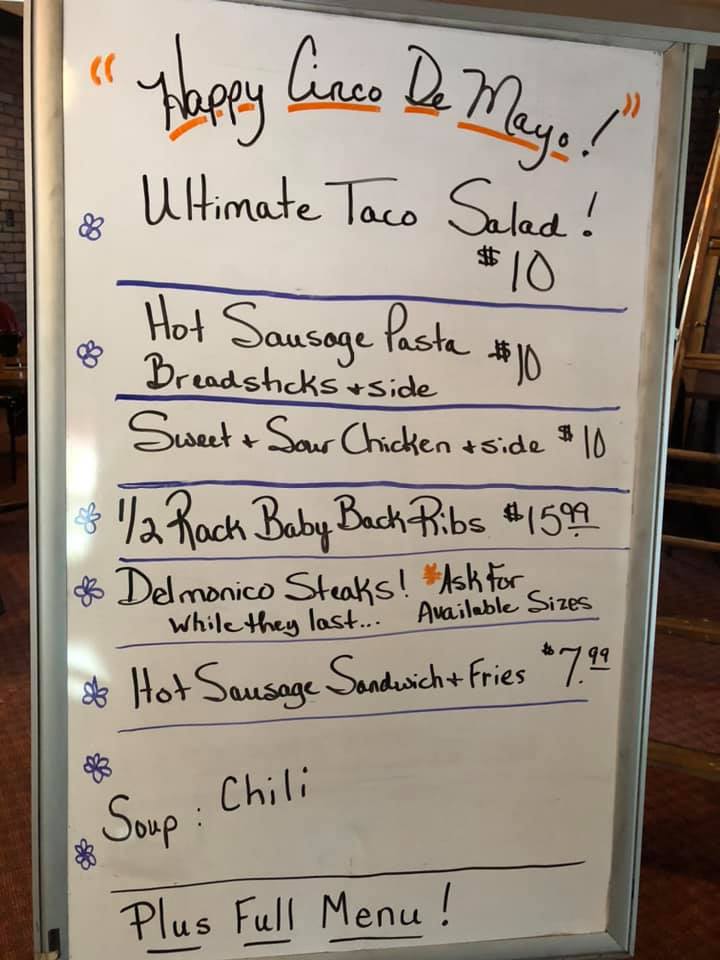 "Happy Cinco De Mayo!"
Ultimate Taco Salad!
$10
Hot Sausage Pasta $10
Breadsticks + side
Sweet + Sour Chicken + side $10
1/2 Rack Baby Back Ribs $15.99
Delmonico Steaks! *Ask For
While they last... Available Sizes
Hot Sausage Sandwich + Fries $7.99
Soup: Chili
Plus Full Menu!